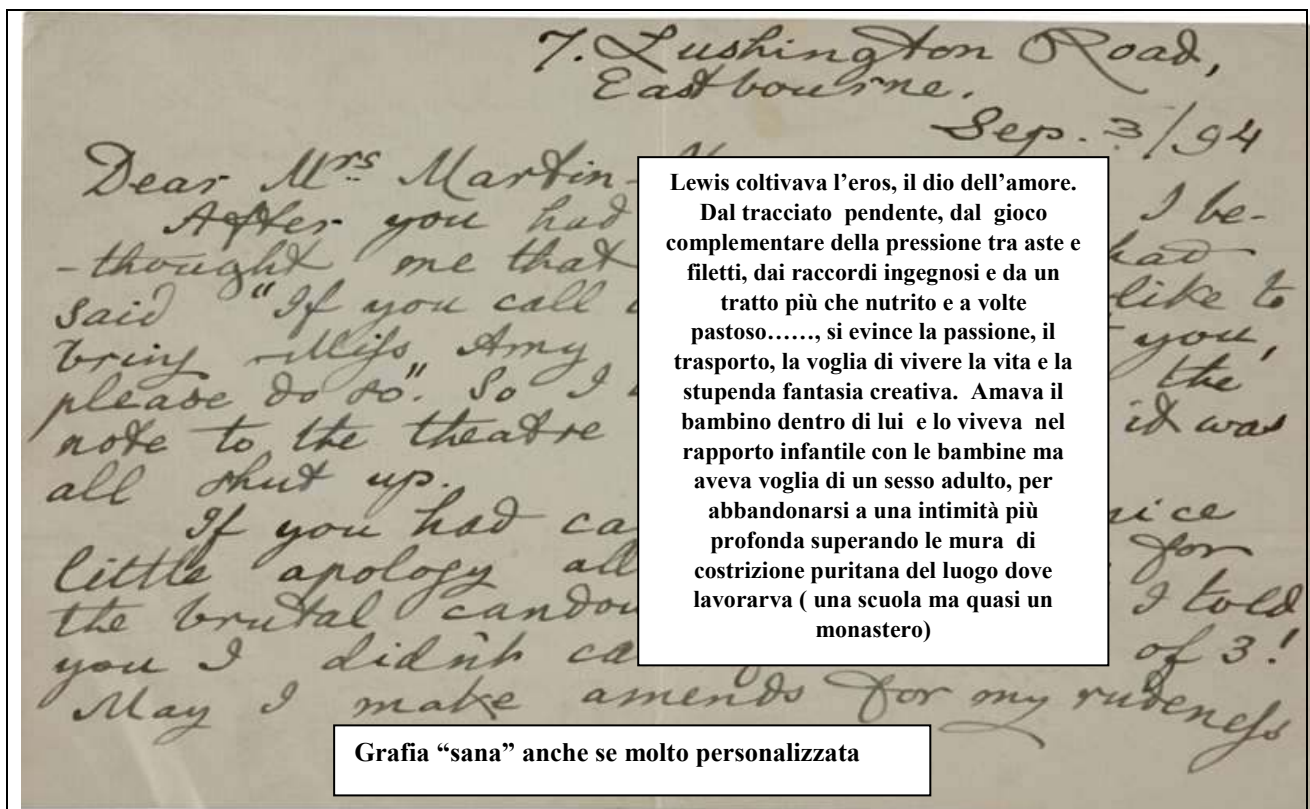 7. Lushington Road,
Eastbourne.
Sep. 3/94
Dear Mrs Martin-
After you had I be-
-thought me that had
said "If you call like to
bring Miss Amy you,
please do so". So I the
note to the theatre it was
all shut up.
If you had ca nice
little apology all for
the brutal candou I told
you I didn't ca of 3!
May I make amends for my rudeness
Lewis coltivava l'eros, il dio dell'amore.
Dal tracciato pendente, dal gioco
complementare della pressione tra aste e
filetti, dai raccordi ingegnosi e da un
tratto più che nutrito e a volte
pastoso……, si evince la passione, il
trasporto, la voglia di vivere la vita e la
stupenda fantasia creativa. Amava il
bambino dentro di lui e lo viveva nel
rapporto infantile con le bambine ma
aveva voglia di un sesso adulto, per
abbandonarsi a una intimità più
profonda superando le mura di
costrizione puritana del luogo dove
lavorarva ( una scuola ma quasi un
monastero)
Grafia "sana" anche se molto personalizzata